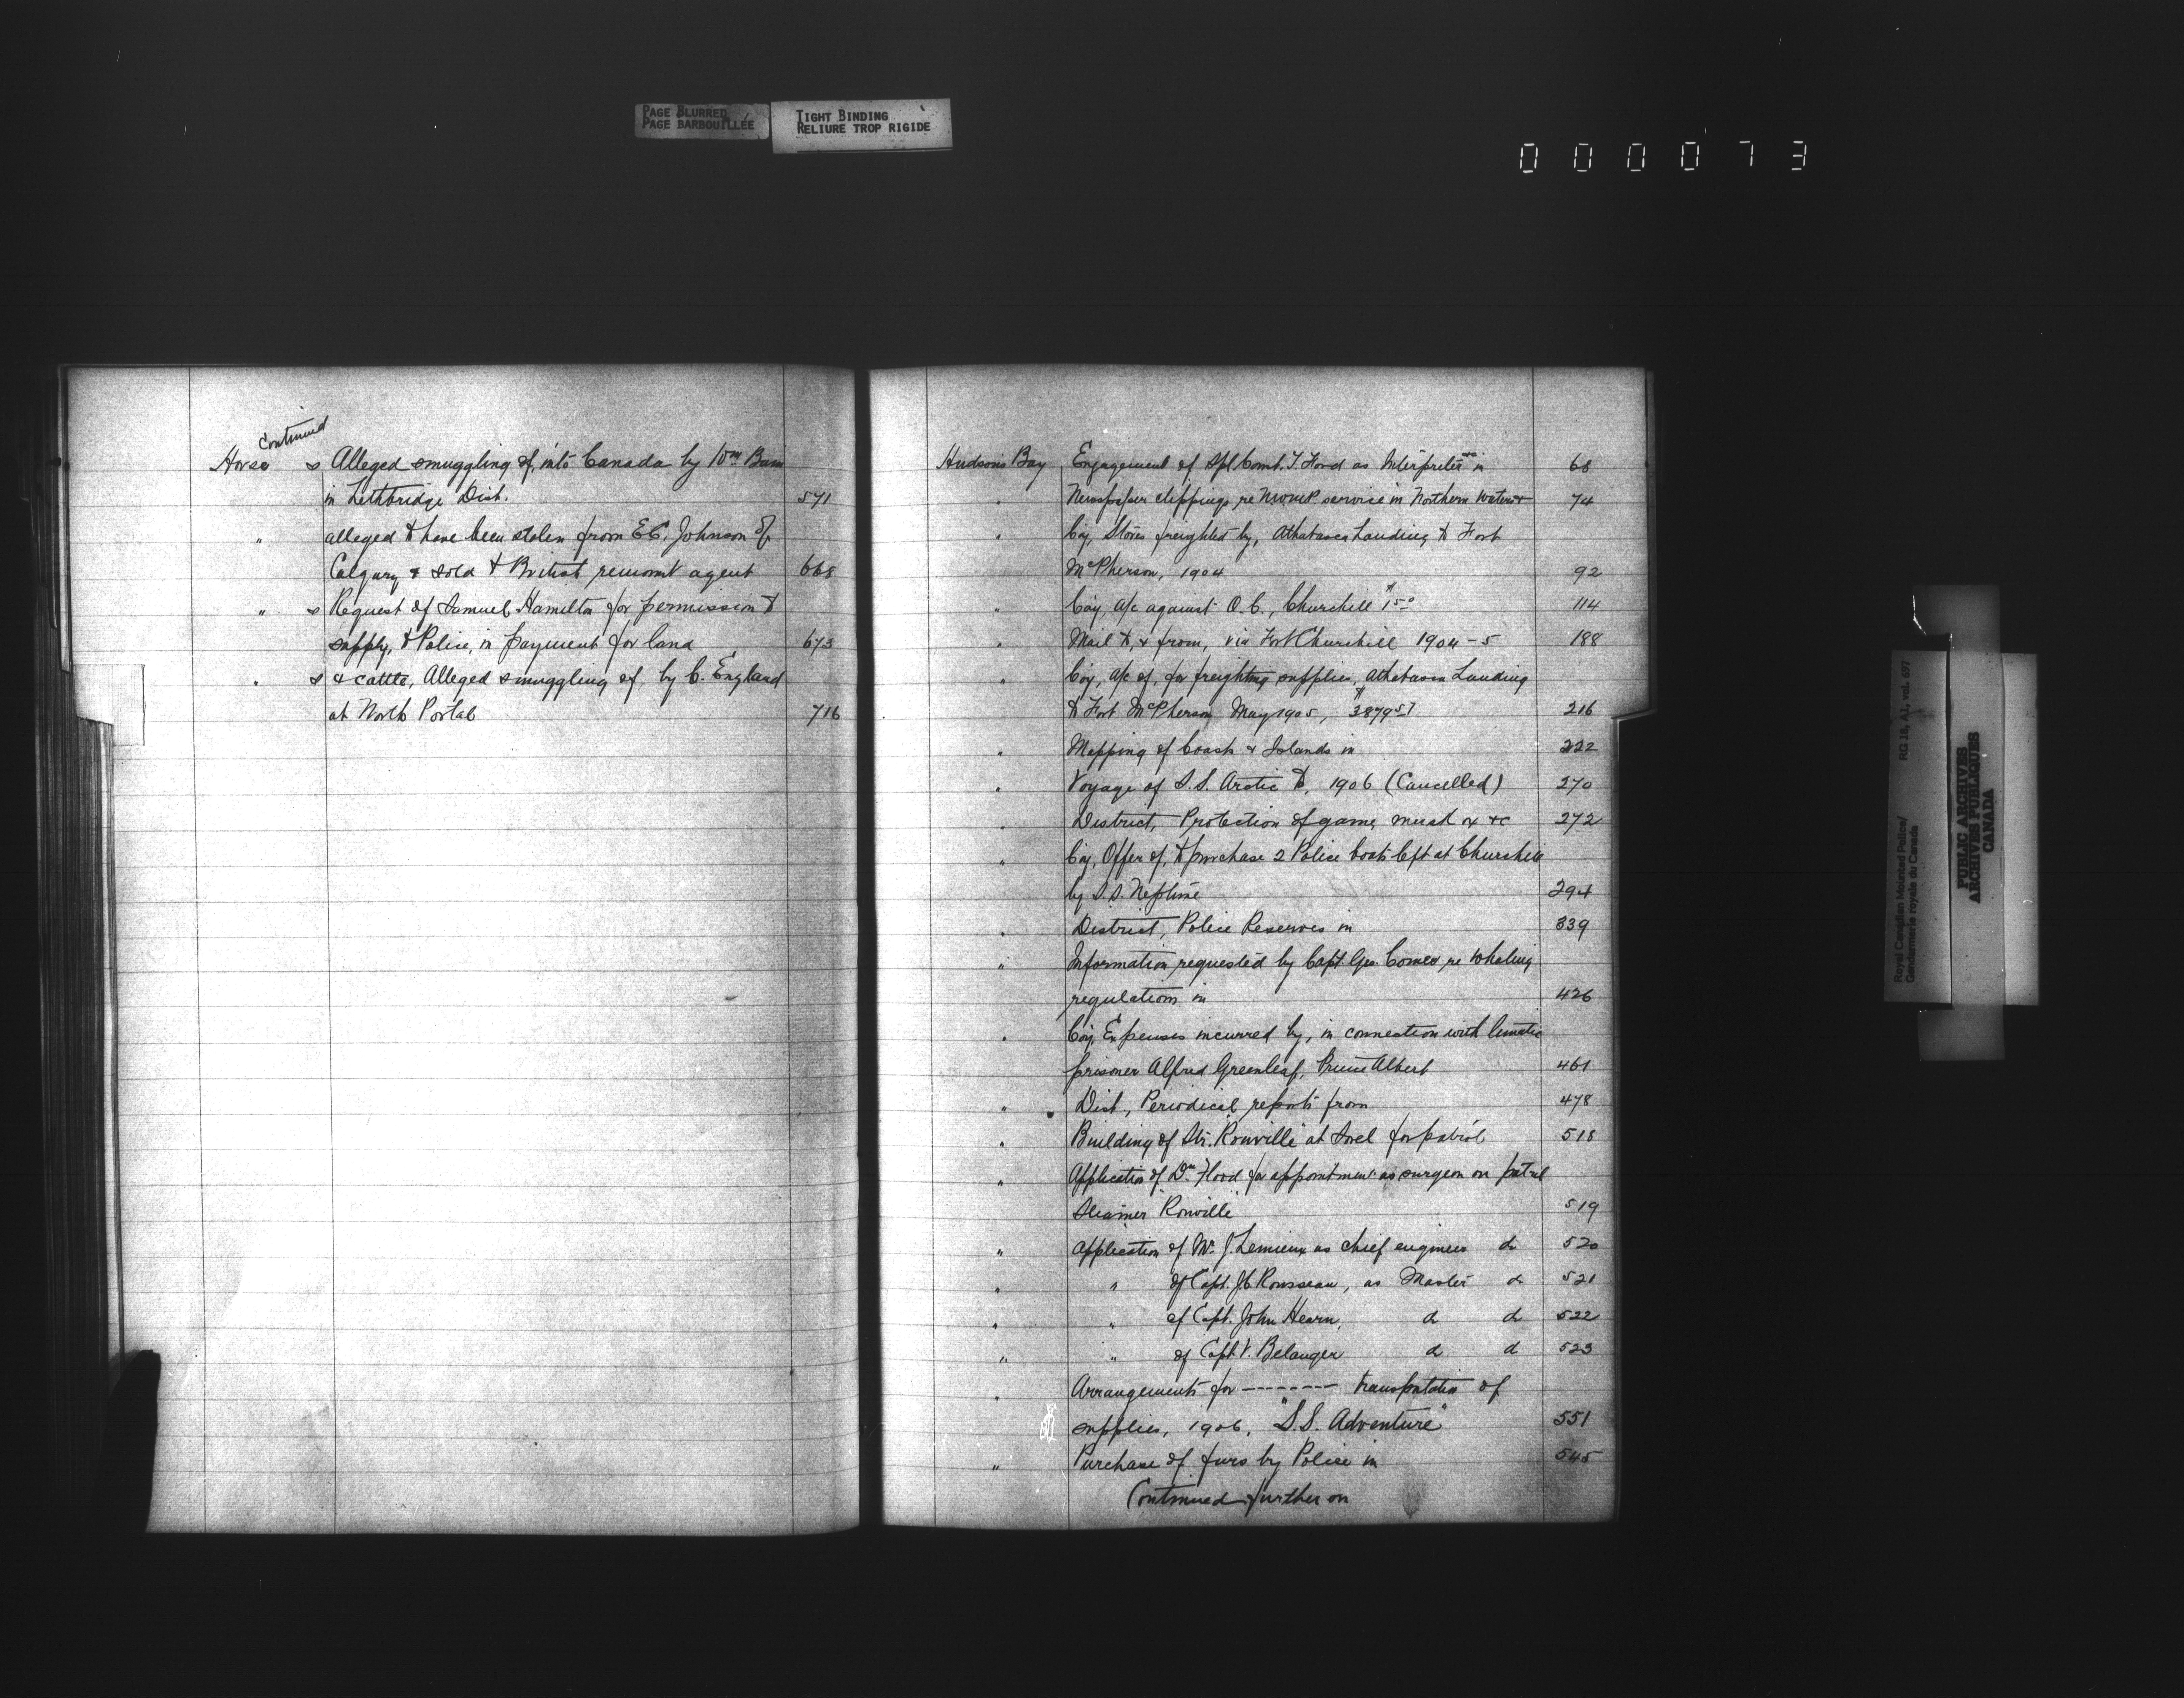 PAGE BLURRED
PAGE BARBOUILLÉE
TIGHT BINDING
RELIURE TROP RIGIDE
000073
Continued
Horse s Alleged smuggling of, into Canada by Wm Bain
in Lethbridge Dist. 571
" alleged to have been stolen from E.C. Johnson of
Calgary & sold to British remount agent 668
" s Request of Samuel Hamilton for permission to
supply, to Police, in payment for land 673
" s & cattle, Alleged smuggling of, by C. England
at North Portal 716
Hudsons Bay Engagement of Spl. Const. T. Ford as Interpreter in 68
" Newspaper clippings re NWMP. service in Northern Waters 74
" Coy, Stores freighted by, Athabasca Landing to Fort
McPherson, 1904 92
" Coy, a/c against O.C., Churchill $1.50 114
" Mail to, & from, via Fort Churchill 1904-5 188
" Coy, a/c of, for freighting supplies, Athabasca Landing
to Fort McPherson, May 1905, $3879.57 216
" Mapping of Coasts & Islands in 222
" Voyage of S.S. Arctic to, 1906 (Cancelled) 270
" District, Protection of game, musk ox &c 272
" Coy, Offer of, to purchase 2 Police boats left at Churchill
by S.S. Neptune 294
" District, Police Reserves in 339
" Information requested by Capt. Geo. Comer re Whaling
regulations in 426
" Coy, Expenses incurred by, in connection with lunatic
prisoner Alfred Greenleaf, Prince Albert 461
" Dist., Periodical reports from 478
" Building of Str. "Rouville" at Sorel for patrol 518
" Application of Dr. Flood for appointment as surgeon on patrol
steamer "Rouville" 519
" Application of Mr. J. Lemieux as chief engineer do 520
" " of Capt. J.C. Rousseau, as Master do 521
" " of Capt. John Hearn, do do 522
" " of Capt. V. Belanger do do 523
" Arrangements for ------- transportation of
supplies, 1906, "S.S. Adventure" 551
" Purchase of furs by Police in 545
Continued further on
Royal Canadian Mounted Police/
Gendarmerie royale du Canada
RG 18, A1, vol. 697
PUBLIC ARCHIVES
ARCHIVES PUBLIQUES
CANADA